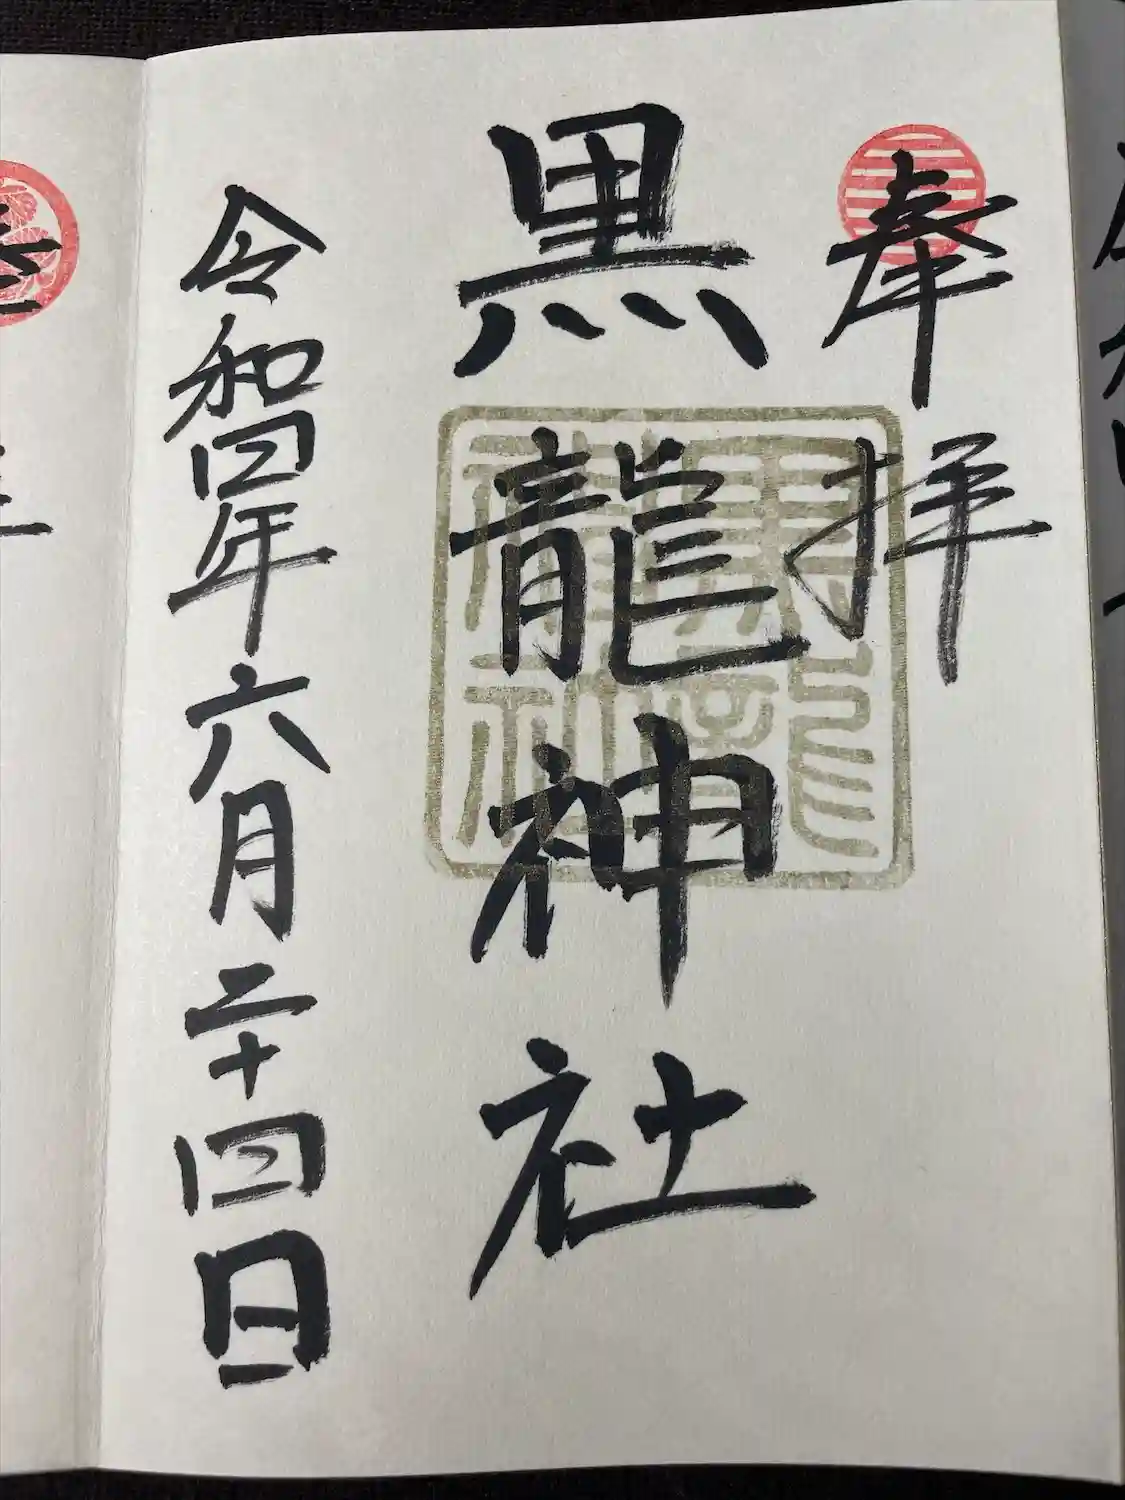 奉拝
黒龍神社
令和四年六月二十四日